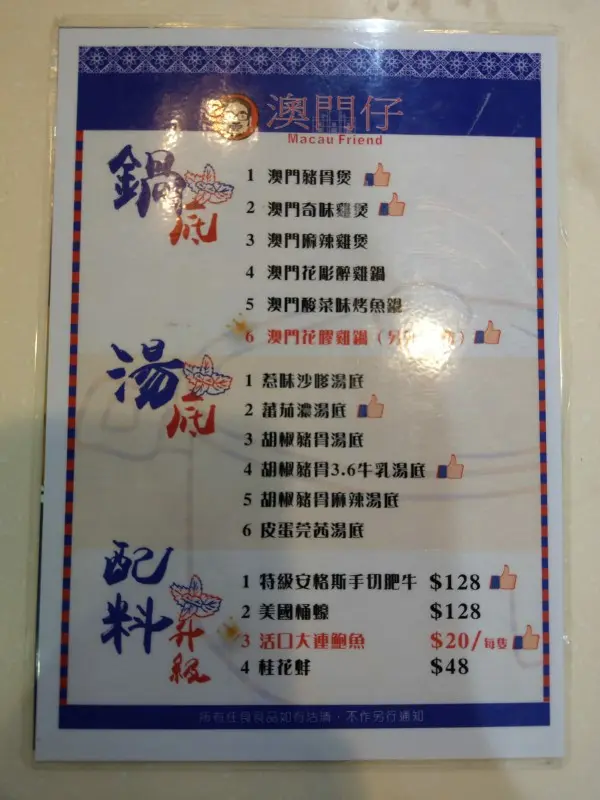 澳門仔
Macau Friend
鍋底
1 澳門豬骨煲
2 澳門奇味雞煲
3 澳門麻辣雞煲
4 澳門花彫醉雞鍋
5 澳門酸菜味烤魚鍋
6 澳門花膠雞鍋（另
湯底
1 惹味沙嗲湯底
2 蕃茄濃湯底
3 胡椒豬骨湯底
4 胡椒豬骨3.6牛乳湯底
5 胡椒豬骨麻辣湯底
6 皮蛋芫茜湯底
配料升級
1 特級安格斯手切肥牛 $128
2 美國桶蠔 $128
3 活口大連鮑魚 $20/每隻
4 桂花蚌 $48
所有任食食品如有沽清，不作另行通知